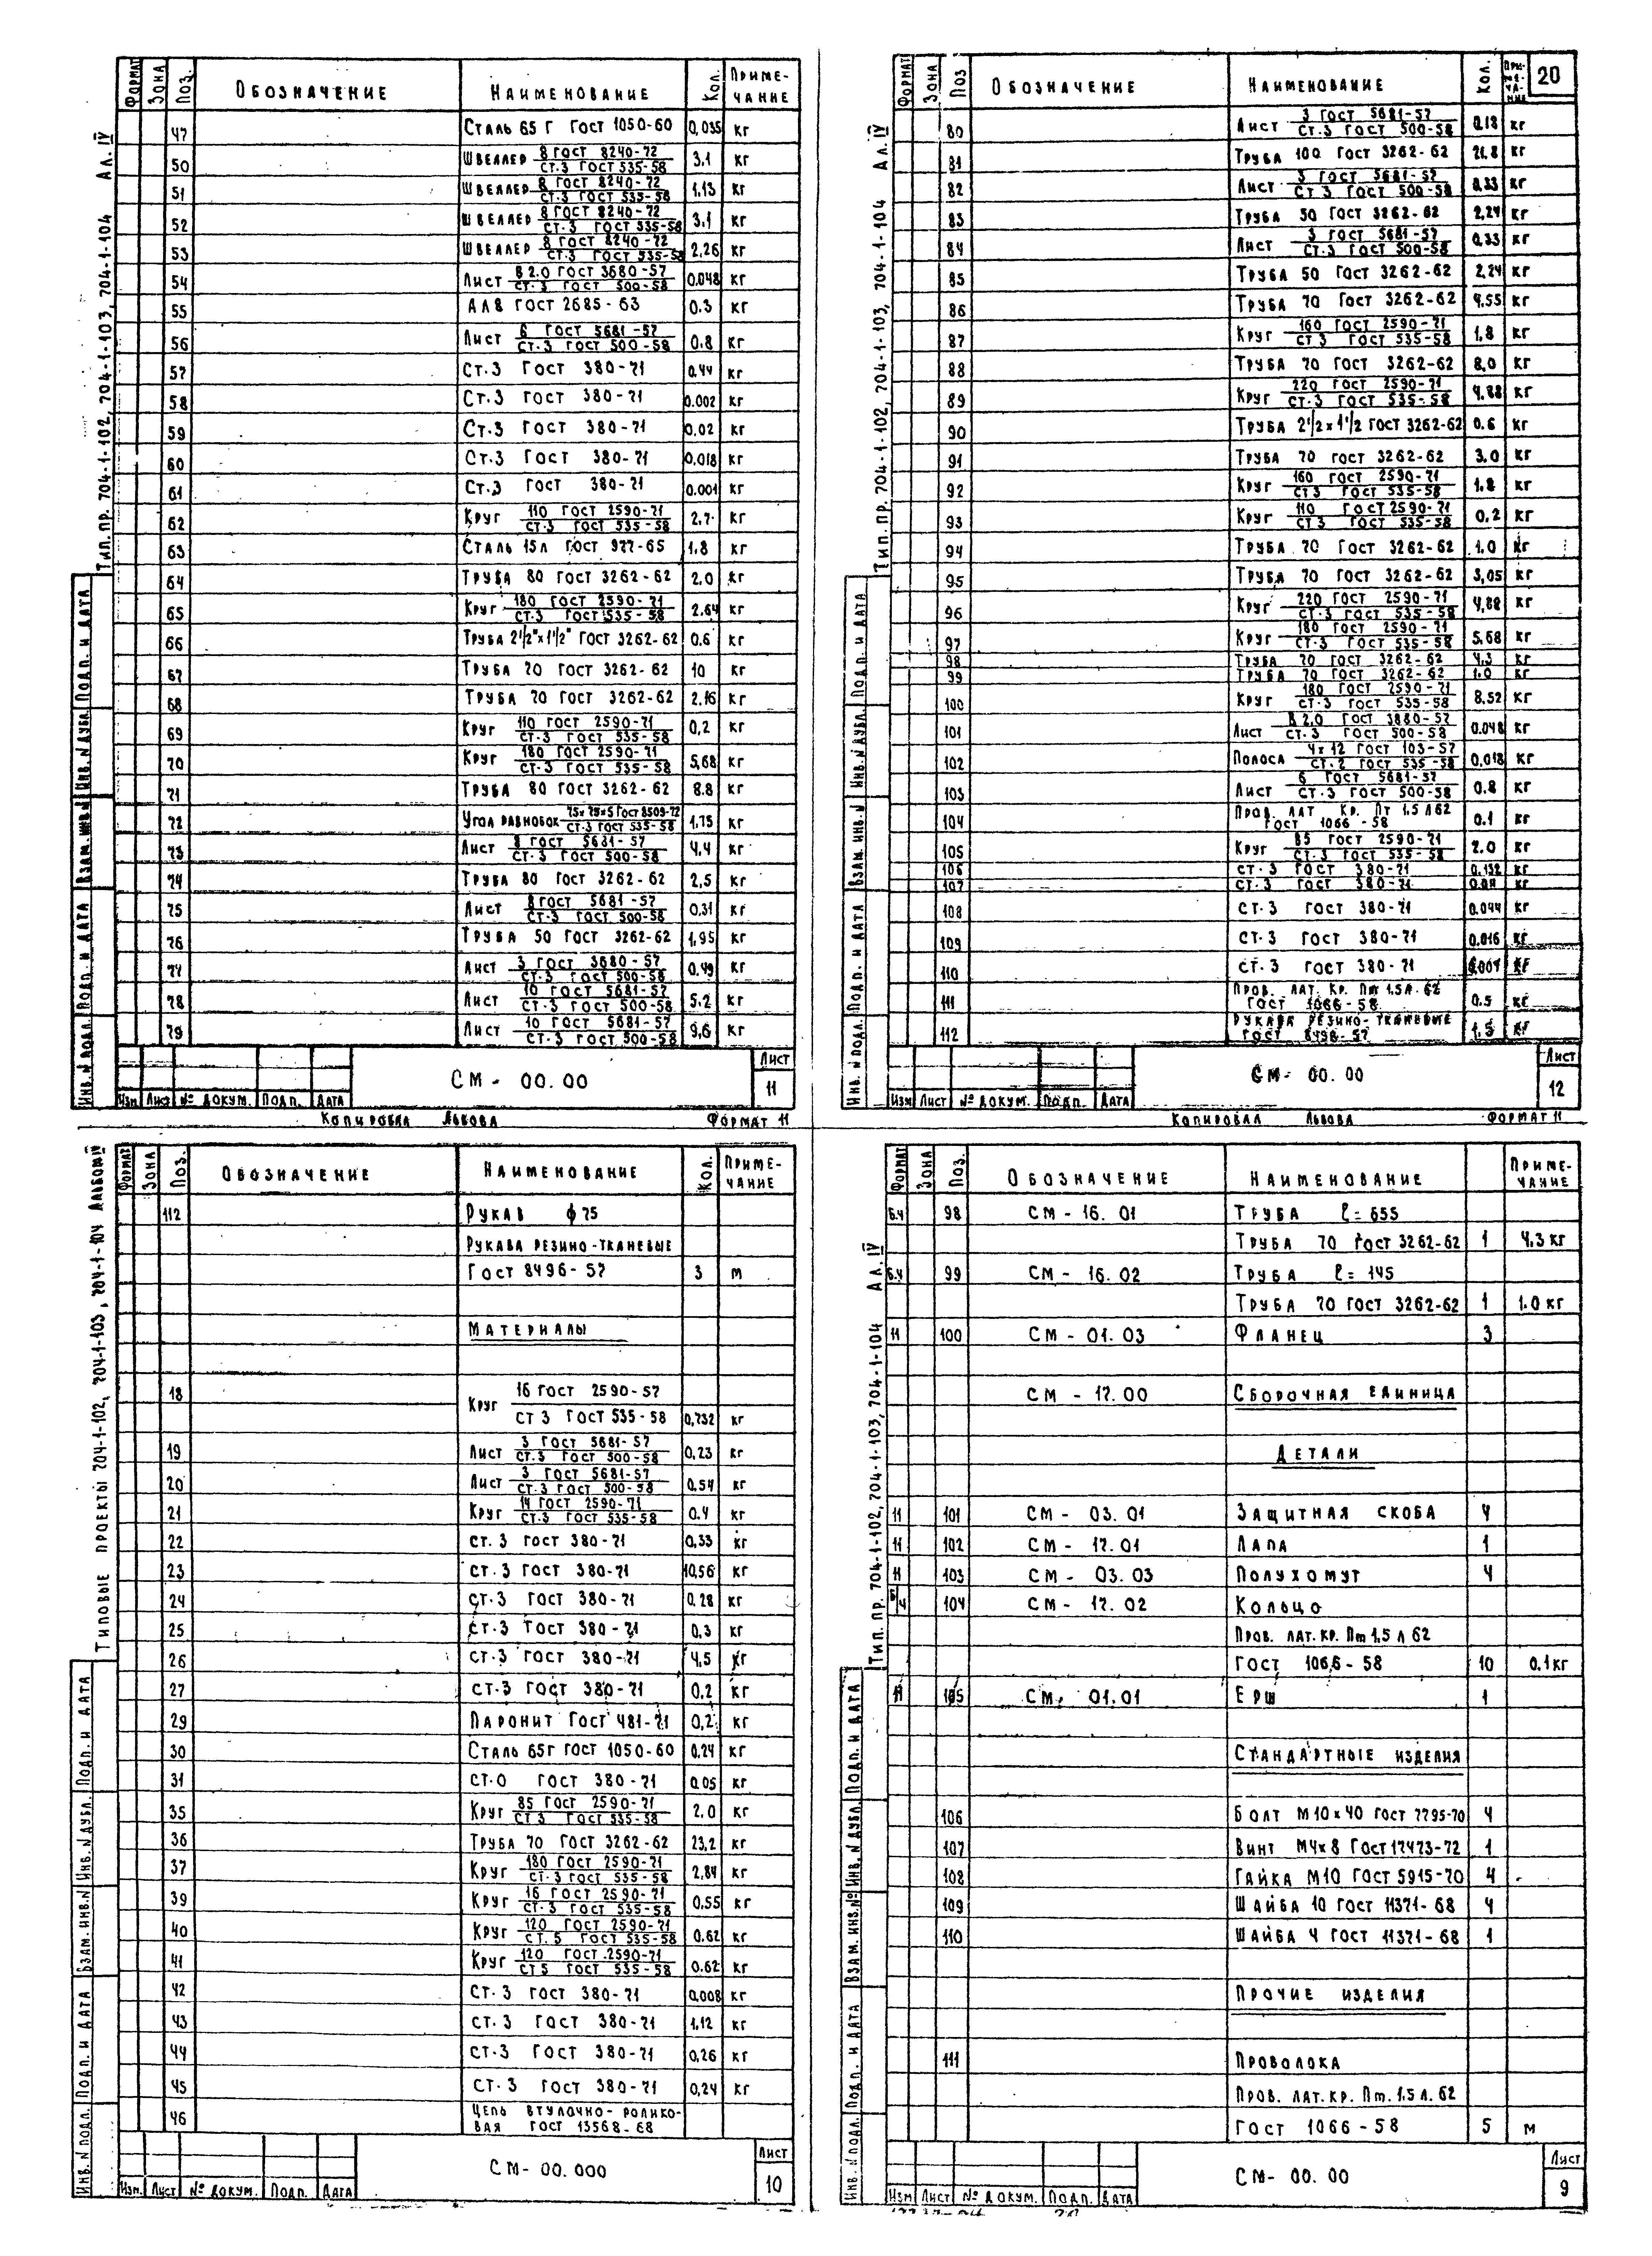 ФОРМАТ ЗОНА ПОЗ. ОБОЗНАЧЕНИЕ НАИМЕНОВАНИЕ КОЛ. ПРИМЕ-ЧАНИЕ
Тип. пр. 704-1-102, 704-1-103, 704-1-104 Ал. IV
47 Сталь 65 Г ГОСТ 1050-60 0,035 кг
50 Швеллер 8 ГОСТ 8240-72 / Ст.3 ГОСТ 535-58 3,1 кг
51 Швеллер 8 ГОСТ 8240-72 / Ст.3 ГОСТ 535-58 1,13 кг
52 Швеллер 8 ГОСТ 8240-72 / Ст.3 ГОСТ 535-58 3,1 кг
53 Швеллер 8 ГОСТ 8240-72 / Ст.3 ГОСТ 535-58 2,26 кг
54 Лист В 2.0 ГОСТ 3680-57 / Ст.3 ГОСТ 500-58 0.048 кг
55 АЛ8 ГОСТ 2685-63 0.3 кг
56 Лист 6 ГОСТ 5681-57 / Ст.3 ГОСТ 500-58 0.8 кг
57 Ст.3 ГОСТ 380-71 0.44 кг
58 Ст.3 ГОСТ 380-71 0.002 кг
59 Ст.3 ГОСТ 380-71 0.02 кг
60 Ст.3 ГОСТ 380-71 0.018 кг
61 Ст.3 ГОСТ 380-71 0.001 кг
62 Круг 110 ГОСТ 2590-71 / Ст.3 ГОСТ 535-58 2,7 кг
63 Сталь 15л ГОСТ 977-65 1.8 кг
64 Труба 80 ГОСТ 3262-62 2.0 кг
65 Круг 180 ГОСТ 2590-71 / Ст.3 ГОСТ 535-58 2.64 кг
66 Труба 2 1/2"x1 1/2" ГОСТ 3262-62 0.6 кг
67 Труба 70 ГОСТ 3262-62 10 кг
68 Труба 70 ГОСТ 3262-62 2.16 кг
69 Круг 110 ГОСТ 2590-71 / Ст.3 ГОСТ 535-58 0,2 кг
70 Круг 180 ГОСТ 2590-71 / Ст.3 ГОСТ 535-58 5,68 кг
71 Труба 80 ГОСТ 3262-62 8.8 кг
72 Угол равнобок 75x75x5 ГОСТ 8509-72 / Ст.3 ГОСТ 535-58 1,75 кг
73 Лист 8 ГОСТ 5681-57 / Ст.3 ГОСТ 500-58 4,4 кг
74 Труба 80 ГОСТ 3262-62 2,5 кг
75 Лист 8 ГОСТ 5681-57 / Ст.3 ГОСТ 500-58 0.31 кг
76 Труба 50 ГОСТ 3262-62 1,95 кг
77 Лист 3 ГОСТ 3680-57 / Ст.3 ГОСТ 500-58 0.49 кг
78 Лист 10 ГОСТ 5681-57 / Ст.3 ГОСТ 500-58 5.2 кг
79 Лист 10 ГОСТ 5681-57 / Ст.3 ГОСТ 500-58 9,6 кг
Инв. № подл. Подп. и дата Взам. инв. № Инв. № дубл. Подп. и дата
Изм Лист № докум. Подп. Дата
СМ - 00.00
Лист 11
Копировал Львова Формат 11
ФОРМАТ ЗОНА ПОЗ ОБОЗНАЧЕНИЕ НАИМЕНОВАНИЕ КОЛ. ПРИ-МЕ-ЧА-НИЕ 20
Тип. пр. 704-1-102, 704-1-103, 704-1-104 Ал. IV
80 Лист 3 ГОСТ 5681-57 / Ст.3 ГОСТ 500-58 0.18 кг
81 Труба 100 ГОСТ 3262-62 21.8 кг
82 Лист 3 ГОСТ 5681-57 / Ст 3 ГОСТ 500-58 0.33 кг
83 Труба 50 ГОСТ 3262-62 2,24 кг
84 Лист 3 ГОСТ 5681-57 / Ст.3 ГОСТ 500-58 0.33 кг
85 Труба 50 ГОСТ 3262-62 2,24 кг
86 Труба 70 ГОСТ 3262-62 4,55 кг
87 Круг 160 ГОСТ 2590-71 / Ст 3 ГОСТ 535-58 1,8 кг
88 Труба 70 ГОСТ 3262-62 8,0 кг
89 Круг 220 ГОСТ 2590-71 / Ст.3 ГОСТ 535-58 4,88 кг
90 Труба 2 1/2 x 1 1/2 ГОСТ 3262-62 0.6 кг
91 Труба 70 ГОСТ 3262-62 3.0 кг
92 Круг 160 ГОСТ 2590-71 / Ст 3 ГОСТ 535-58 1.8 кг
93 Круг 110 ГОСТ 2590-71 / Ст 3 ГОСТ 535-58 0,2 кг
94 Труба 70 ГОСТ 3262-62 1.0 кг
95 Труба 70 ГОСТ 3262-62 3,05 кг
96 Круг 220 ГОСТ 2590-71 / Ст.3 ГОСТ 535-58 4,88 кг
97 Круг 180 ГОСТ 2590-71 / Ст.3 ГОСТ 535-58 5.68 кг
98 Труба 70 ГОСТ 3262-62 4.3 кг
99 Труба 70 ГОСТ 3262-62 1.0 кг
100 Круг 180 ГОСТ 2590-71 / Ст.3 ГОСТ 535-58 8.52 кг
101 Лист В 2.0 ГОСТ 3680-57 / Ст.3 ГОСТ 500-58 0.048 кг
102 Полоса 4x12 ГОСТ 103-57 / Ст.2 ГОСТ 535-58 0,018 кг
103 Лист 6 ГОСТ 5681-57 / Ст.3 ГОСТ 500-58 0.8 кг
104 Пров. лат. кр. Пт 1.5 Л 62
ГОСТ 1066-58 0.1 кг
105 Круг 85 ГОСТ 2590-71 / Ст.3 ГОСТ 535-58 2.0 кг
106 Ст.3 ГОСТ 380-71 0.132 кг
107 Ст.3 ГОСТ 380-71 кг
108 Ст.3 ГОСТ 380-71 0.044 кг
109 Ст.3 ГОСТ 380-71 0.016 кг
110 Ст.3 ГОСТ 380-71 0,001 кг
111 Пров. лат. кр. Пт 1.5 Л. 62
ГОСТ 1066-58 0.5 кг
112 Рукава резино-тканевые
ГОСТ 8496-57 1.5 кг
Инв. № подл. Подп. и дата Взам. инв. № Инв. № дубл. Подп. и дата
Изм Лист № докум. Подп. Дата
СМ - 00.00
Лист 12
Копировал Львова Формат 11
ФОРМАТ ЗОНА ПОЗ. ОБОЗНАЧЕНИЕ НАИМЕНОВАНИЕ КОЛ. ПРИМЕ-ЧАНИЕ
Типовые проекты 704-1-102, 704-1-103, 704-1-104 Альбом IV
112 Рукав ф 75
Рукава резино-тканевые
ГОСТ 8496-57 3 м
Материалы
18 Круг 16 ГОСТ 2590-57 / Ст 3 ГОСТ 535-58 0,732 кг
19 Лист 3 ГОСТ 5681-57 / Ст.3 ГОСТ 500-58 0,23 кг
20 Лист 3 ГОСТ 5681-57 / Ст.3 ГОСТ 500-58 0.54 кг
21 Круг 14 ГОСТ 2590-71 / Ст.3 ГОСТ 535-58 0.4 кг
22 Ст.3 ГОСТ 380-71 0,33 кг
23 Ст.3 ГОСТ 380-71 10,56 кг
24 Ст.3 ГОСТ 380-71 0.28 кг
25 Ст.3 ГОСТ 380-71 0,3 кг
26 Ст.3 ГОСТ 380-71 4,5 кг
27 Ст.3 ГОСТ 380-71 0.2 кг
29 Паронит ГОСТ 481-71 0,2 кг
30 Сталь 65г ГОСТ 1050-60 0.24 кг
31 Ст.0 ГОСТ 380-71 0.05 кг
35 Круг 85 ГОСТ 2590-71 / Ст 3 ГОСТ 535-58 2.0 кг
36 Труба 70 ГОСТ 3262-62 23,2 кг
37 Круг 180 ГОСТ 2590-71 / Ст.3 ГОСТ 535-58 2,84 кг
39 Круг 16 ГОСТ 2590-71 / Ст.3 ГОСТ 535-58 0.55 кг
40 Круг 120 ГОСТ 2590-71 / Ст.5 ГОСТ 535-58 0.62 кг
41 Круг 120 ГОСТ 2590-71 / Ст 5 ГОСТ 535-58 0.62 кг
42 Ст.3 ГОСТ 380-71 0.008 кг
43 Ст.3 ГОСТ 380-71 1,12 кг
44 Ст.3 ГОСТ 380-71 0,26 кг
45 Ст.3 ГОСТ 380-71 0,24 кг
46 Цепь втулочно-ролико-
вая ГОСТ 13568-68
Инв. № подл. Подп. и дата Взам. инв. № Инв. № дубл. Подп. и дата
Изм. Лист № докум. Подп. Дата
СМ - 00.000
Лист 10
ФОРМАТ ЗОНА ПОЗ. ОБОЗНАЧЕНИЕ НАИМЕНОВАНИЕ ПРИМЕ-ЧАНИЕ
Тип. пр. 704-1-102, 704-1-103, 704-1-104 Ал. IV
б.ч 98 СМ - 16.01 Труба ℓ= 655
Труба 70 ГОСТ 3262-62 1 4.3 кг
б.ч 99 СМ - 16.02 Труба ℓ= 145
Труба 70 ГОСТ 3262-62 1 1.0 кг
11 100 СМ - 01.03 Фланец 3
СМ - 17.00 Сборочная единица
Детали
11 101 СМ - 03.01 Защитная скоба 4
11 102 СМ - 17.01 Лапа 1
11 103 СМ - 03.03 Полухомут 4
б/ч 104 СМ - 17.02 Кольцо
Пров. лат. кр. Пт 1,5 Л 62
ГОСТ 1066-58 10 0.1 кг
11 105 СМ - 01.01 Ерш 1
Стандартные изделия
106 Болт М10x40 ГОСТ 7795-70 4
107 Винт М4x8 ГОСТ 17473-72 1
108 Гайка М10 ГОСТ 5915-70 4
109 Шайба 10 ГОСТ 11371-68 4
110 Шайба 4 ГОСТ 11371-68 1
Прочие изделия
111 Проволока
Пров. лат. кр. Пт. 1.5 Л. 62
ГОСТ 1066-58 5 м
Инв. № подл. Подп. и дата Взам. инв. № Инв. № дубл. Подп. и дата
Изм Лист № докум. Подп. Дата
СМ - 00.00
Лист 9